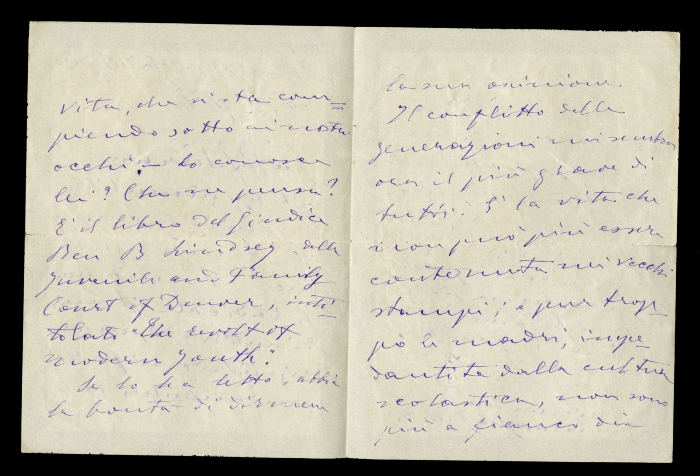 vita, che si sta com=
piendo sotto ai nostri
occhi – Lo conosce
lei? Che ne pensa?
E' il libro del Giudice
Ben B Lindsey della
Juvenile and Family
Court of Denver, inti
tolato "The revolt of
modern youth".
Se lo ha letto, abbia
la bontà di dirmene
la sua opinione.
Il conflitto delle
generazioni mi sembra
ora il più grave di
tutti. E' la vita che
non può più essere
contenuta nei vecchi
stampi; e pur trop
po le madri, impe
dantite dalla cultura
scolastica, non sono
più a fianco dei